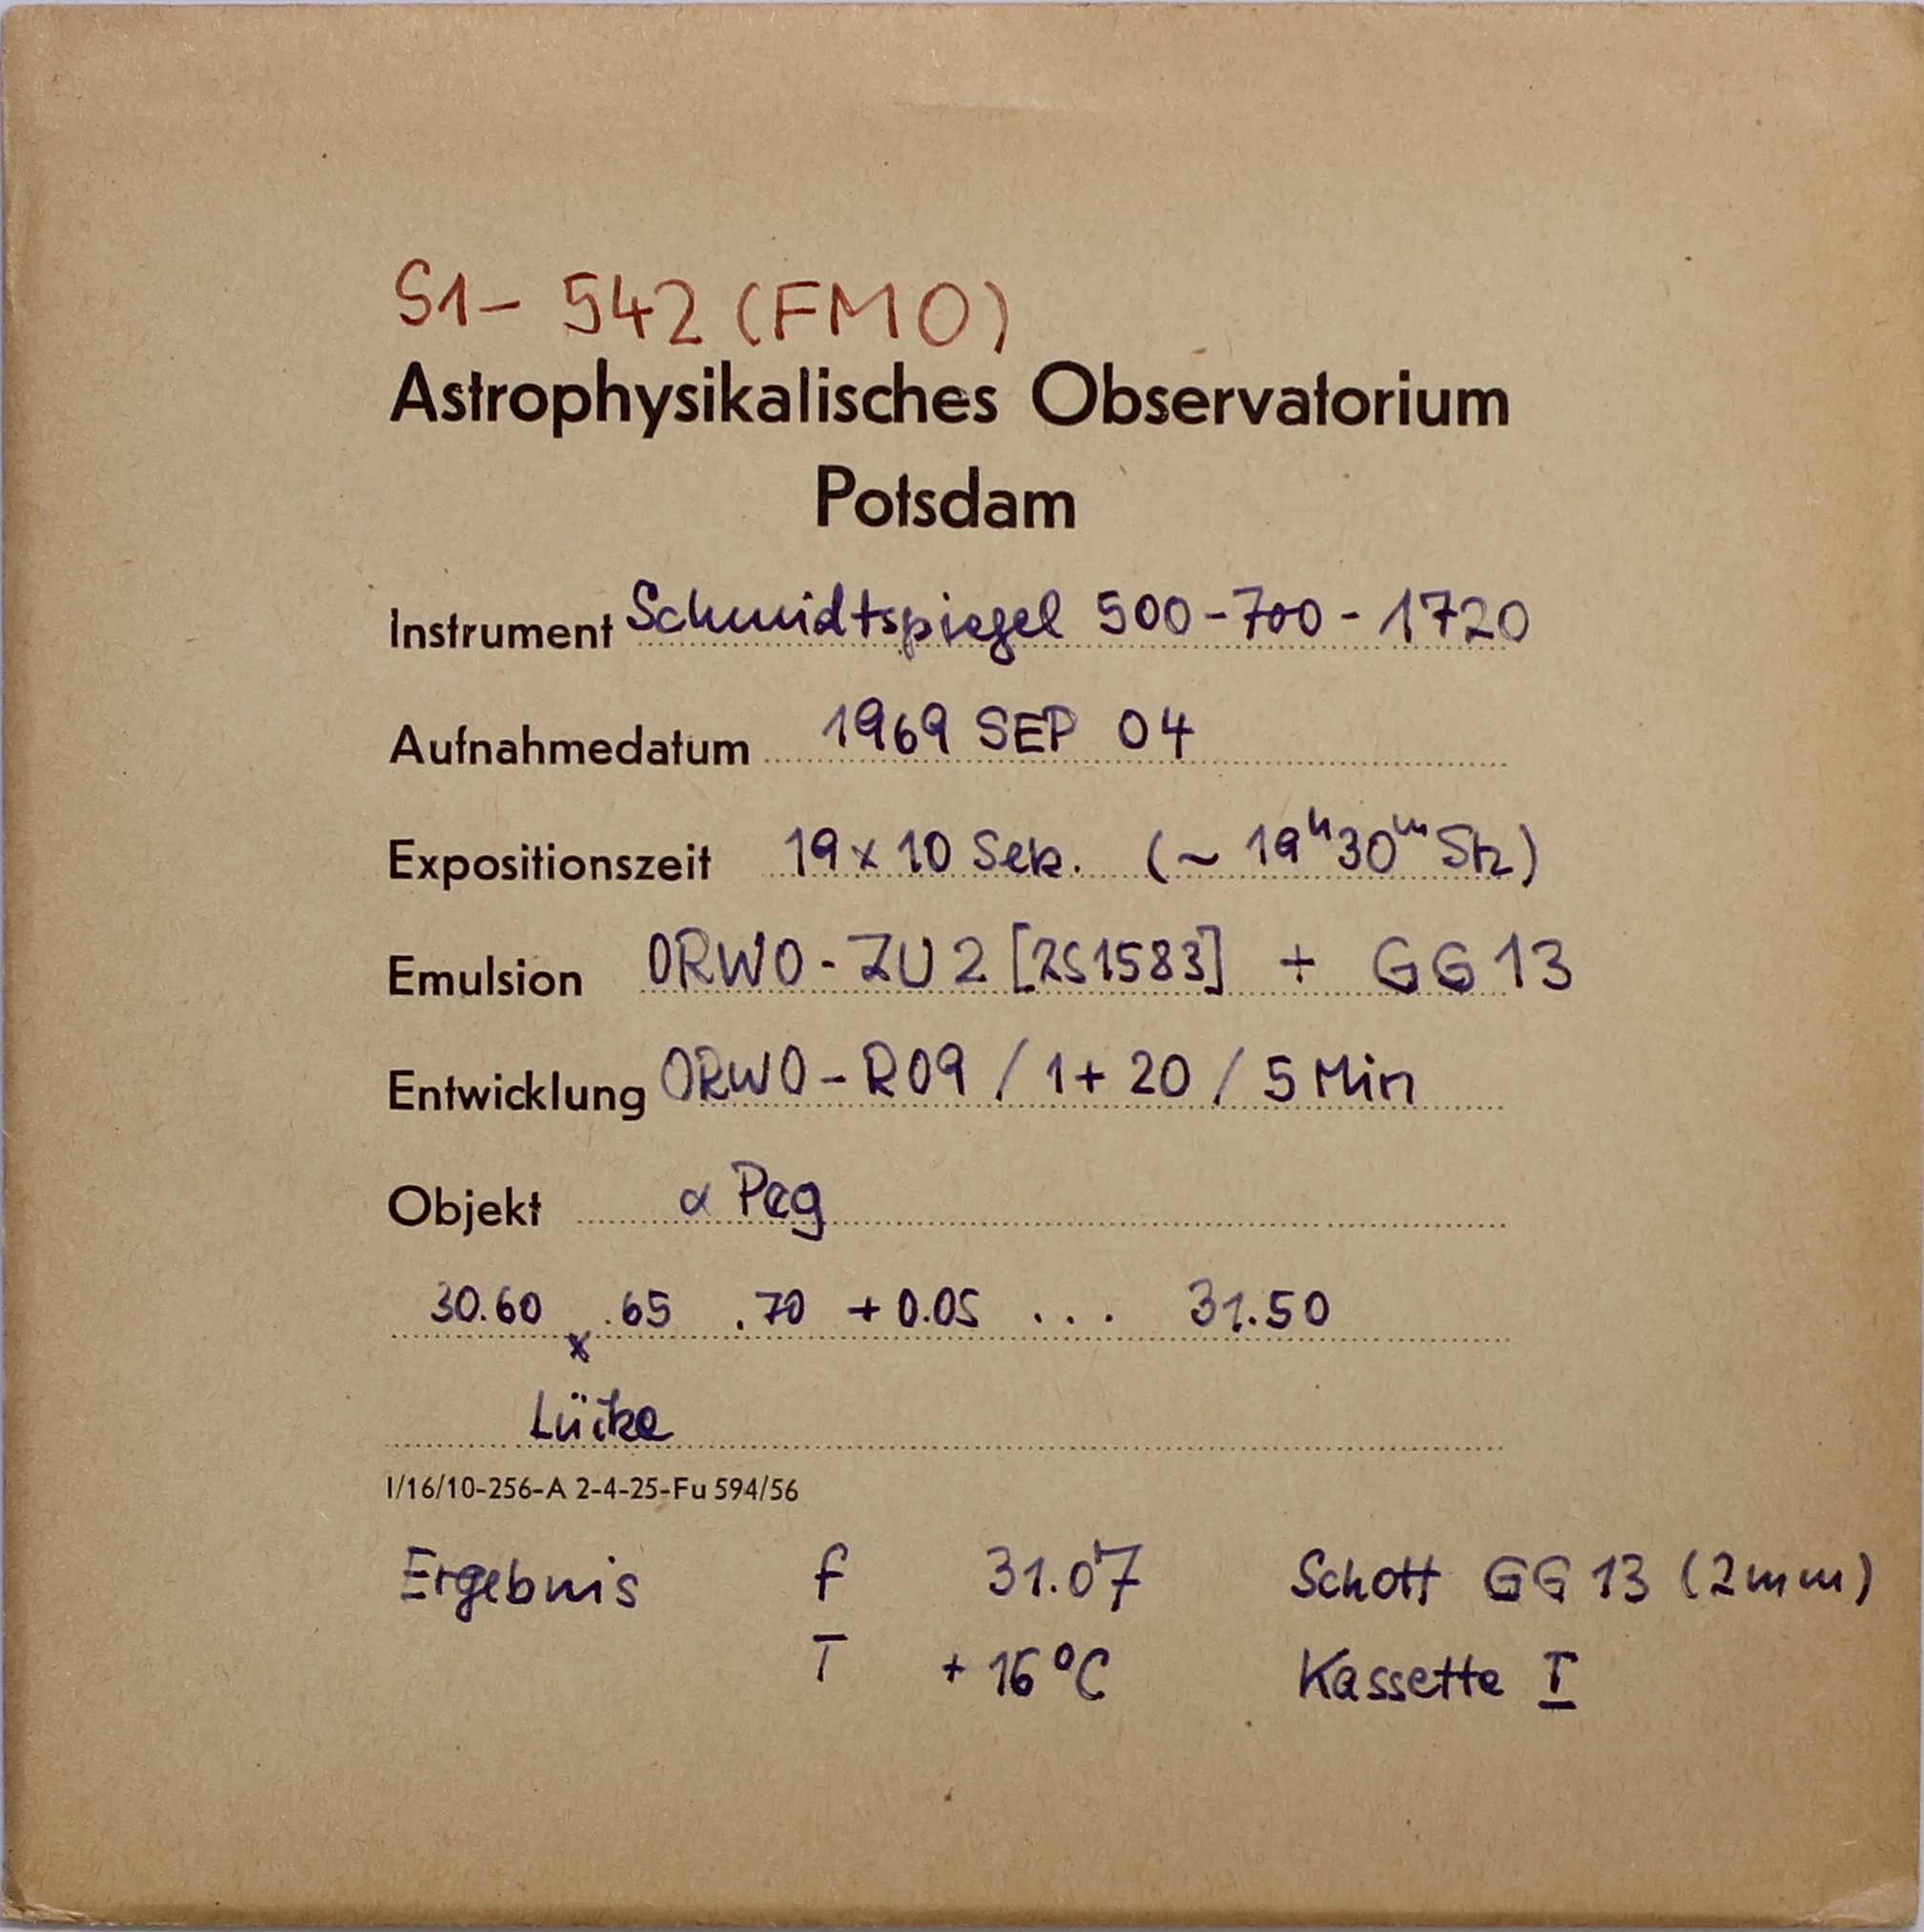 S1 - 542 (FMO)
Astrophysikalisches Observatorium
Potsdam
Instrument Schmidtspiegel 500-700-1720
Aufnahmedatum 1969 SEP 04
Expositionszeit 19 x 10 Sek. (~ 19ʰ30ᵐ Stz)
Emulsion ORWO-ZU2 [2S1583] + GG13
Entwicklung ORWO-R09 / 1+20 / 5 Min
Objekt α Peg
30.60 x .65 .70 +0.05 ... 31.50
Lücke
I/16/10-256-A 2-4-25-Fu 594/56
Ergebnis f 31.07 Schott GG13 (2mm)
T +16°C Kassette I